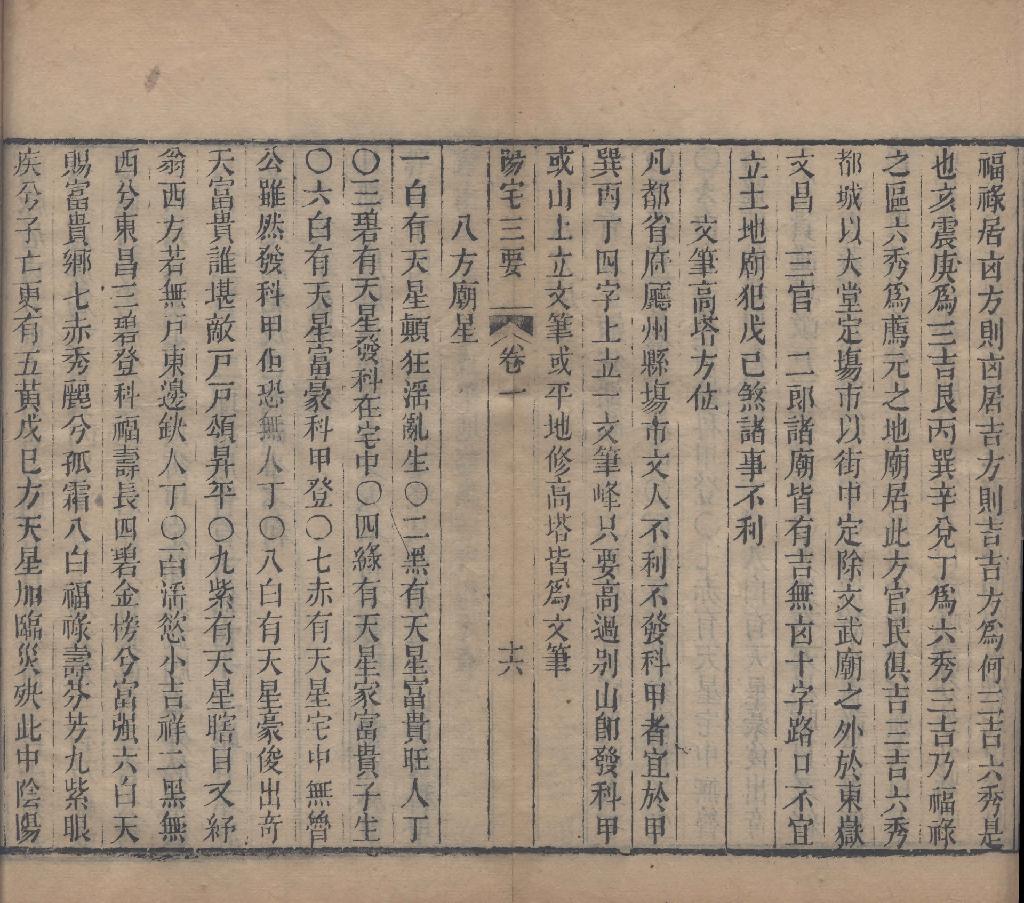 福祿居凶方則凶居吉方則吉吉方爲何三吉六秀是
也亥震庚爲三吉艮丙巽辛兌丁爲六秀三吉乃福祿
之區六秀爲薦元之地廟居此方官民俱吉三吉六秀
都城以大堂定塲市以街中定除文武廟之外於東嶽
文昌 三官 二郎諸廟皆有吉無凶十字路口不宜
立土地廟犯戊己煞諸事不利
文筆高塔方位
凡都省府廳州縣塲市文人不利不發科甲者宜於甲
巽丙丁四字上立一文筆峰只要高過别山卽發科甲
或山上立文筆或平地修高塔皆爲文筆
陽宅三要 卷一 十六
八方廟星
一白有天星顚狂滛亂生〇二黑有天星富貴旺人丁
〇三碧有天星發科在宅中〇四綠有天星家富貴子生
〇六白有天星富豪科甲登〇七赤有天星宅中無
公雖然發科甲但恐無人丁〇八白有天星豪俊出奇
天富貴誰堪敵戸戸頌昇平〇九紫有天星瞎目又紓
翁西方若無戸東邊鈌人丁〇一白滛慾小吉祥二黑無
西兮東昌三碧登科福壽長四碧金榜兮富强六白天
賜富貴鄉七赤秀麗兮孤霜八白福祿壽芬芳九紫眼
疾兮子亡更有五黃戊巳方天星加臨災殃此中陰陽